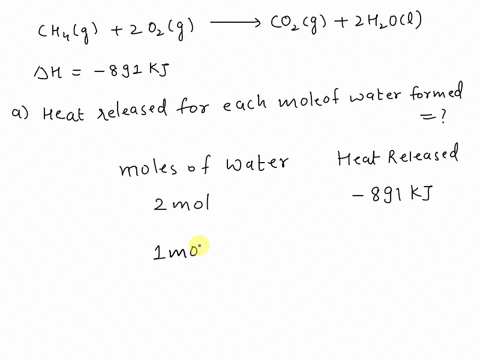 CH4(g) + 2O2(g) ⟶ CO2(g) + 2H2O(l)
ΔH = -891 KJ
a) Heat released for each mole of water formed
= ?
moles of water Heat Released
2 mol - 891 KJ
1 mo